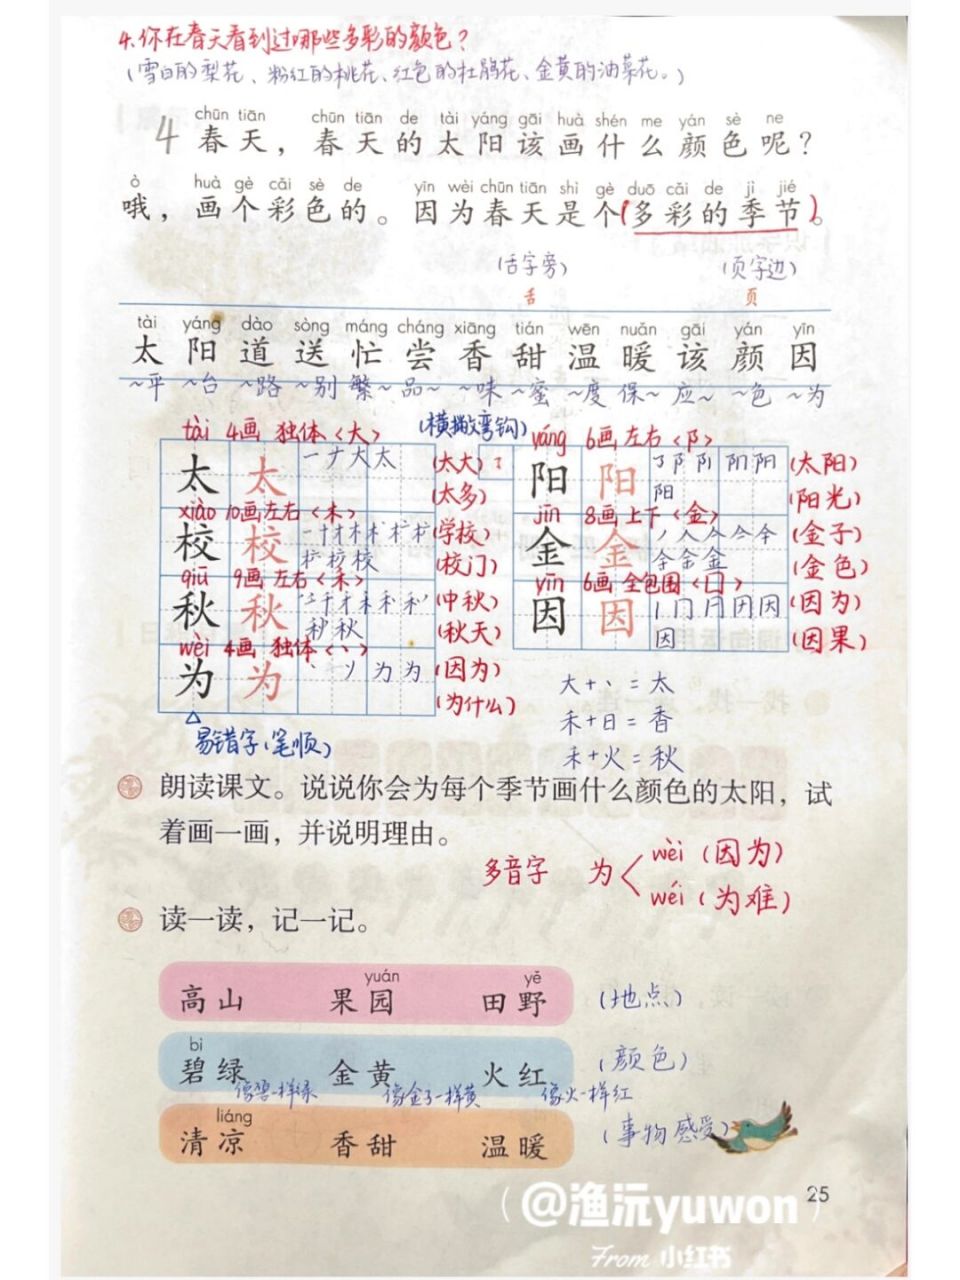 4.你在春天看到过哪些多彩的颜色？
（雪白的梨花、粉红的桃花、红色的杜鹃花、金黄的油菜花。）
chūn tiān chūn tiān de tài yáng gāi huà shén me yán sè ne
4 春天，春天的太阳该画什么颜色呢？
ò huà gè cǎi sè de yīn wèi chūn tiān shì gè duō cǎi de jì jié
哦，画个彩色的。因为春天是个(多彩的季节)。
（舌字旁） （页字边）
舌 页
tài yáng dào sòng máng cháng xiāng tián wēn nuǎn gāi yán yīn
太 阳 道 送 忙 尝 香 甜 温 暖 该 颜 因
~平 ~台 ~路 ~别 繁~ 品~ ~味 ~蜜 ~度 保~ 应~ ~色 ~为
tài 4画 独体〈大〉 （横撇弯钩） yáng 6画 左右〈阝〉
太 太 一ナ大太 （太大） 阳 阳 阝阝阳阳 （太阳）
（太多） 阳 （阳光）
xiào 10画 左右〈木〉 jīn 8画 上下〈金〉
校 校 （学校） 金 金 丿人人今今 （金子）
校 （校门） 余金金 （金色）
qiū 9画 左右〈禾〉 yīn 6画 全包围〈囗〉
秋 秋 （中秋） 因 因 丨冂冂因因 （因为）
秒 秋 （秋天） 因 （因果）
wèi 4画 独体〈丶〉
为 为 丶丷为为 （因为）
（为什么）
大+丶=太
禾+日=香
禾+火=秋
易错字（笔顺）
朗读课文。说说你会为每个季节画什么颜色的太阳，试
着画一画，并说明理由。
多音字 为 wèi（因为）
wéi（为难）
读一读，记一记。
yuán yě
高山 果园 田野 （地点）
bì
碧绿 金黄 火红 （颜色）
像碧一样绿 像金子一样黄 像火一样红
liáng
清凉 香甜 温暖 （事物感受）
25
@渔沅yuwon
From 小红书